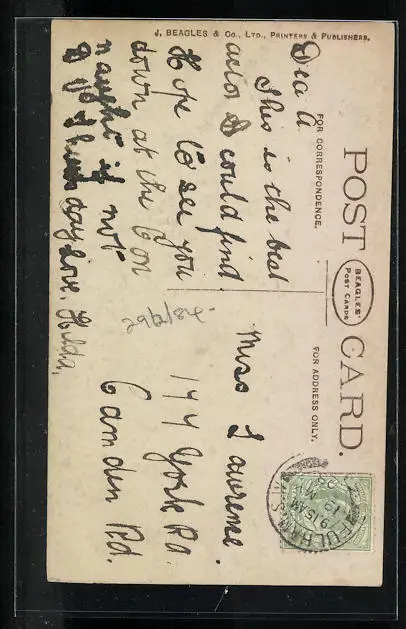 J. BEAGLES & CO., LTD., PRINTERS & PUBLISHERS.
POST CARD.
BEAGLES'
POST CARDS
FOR CORRESPONDENCE.
FOR ADDRESS ONLY.
Dea A
This is the best
actor I could find.
Hope to see you
down at the Con
naught if not
Thursday love. Hilda.
Miss Lawrence.
177 York Rd.
Camden Rd.
FULHAM
9.15 AM